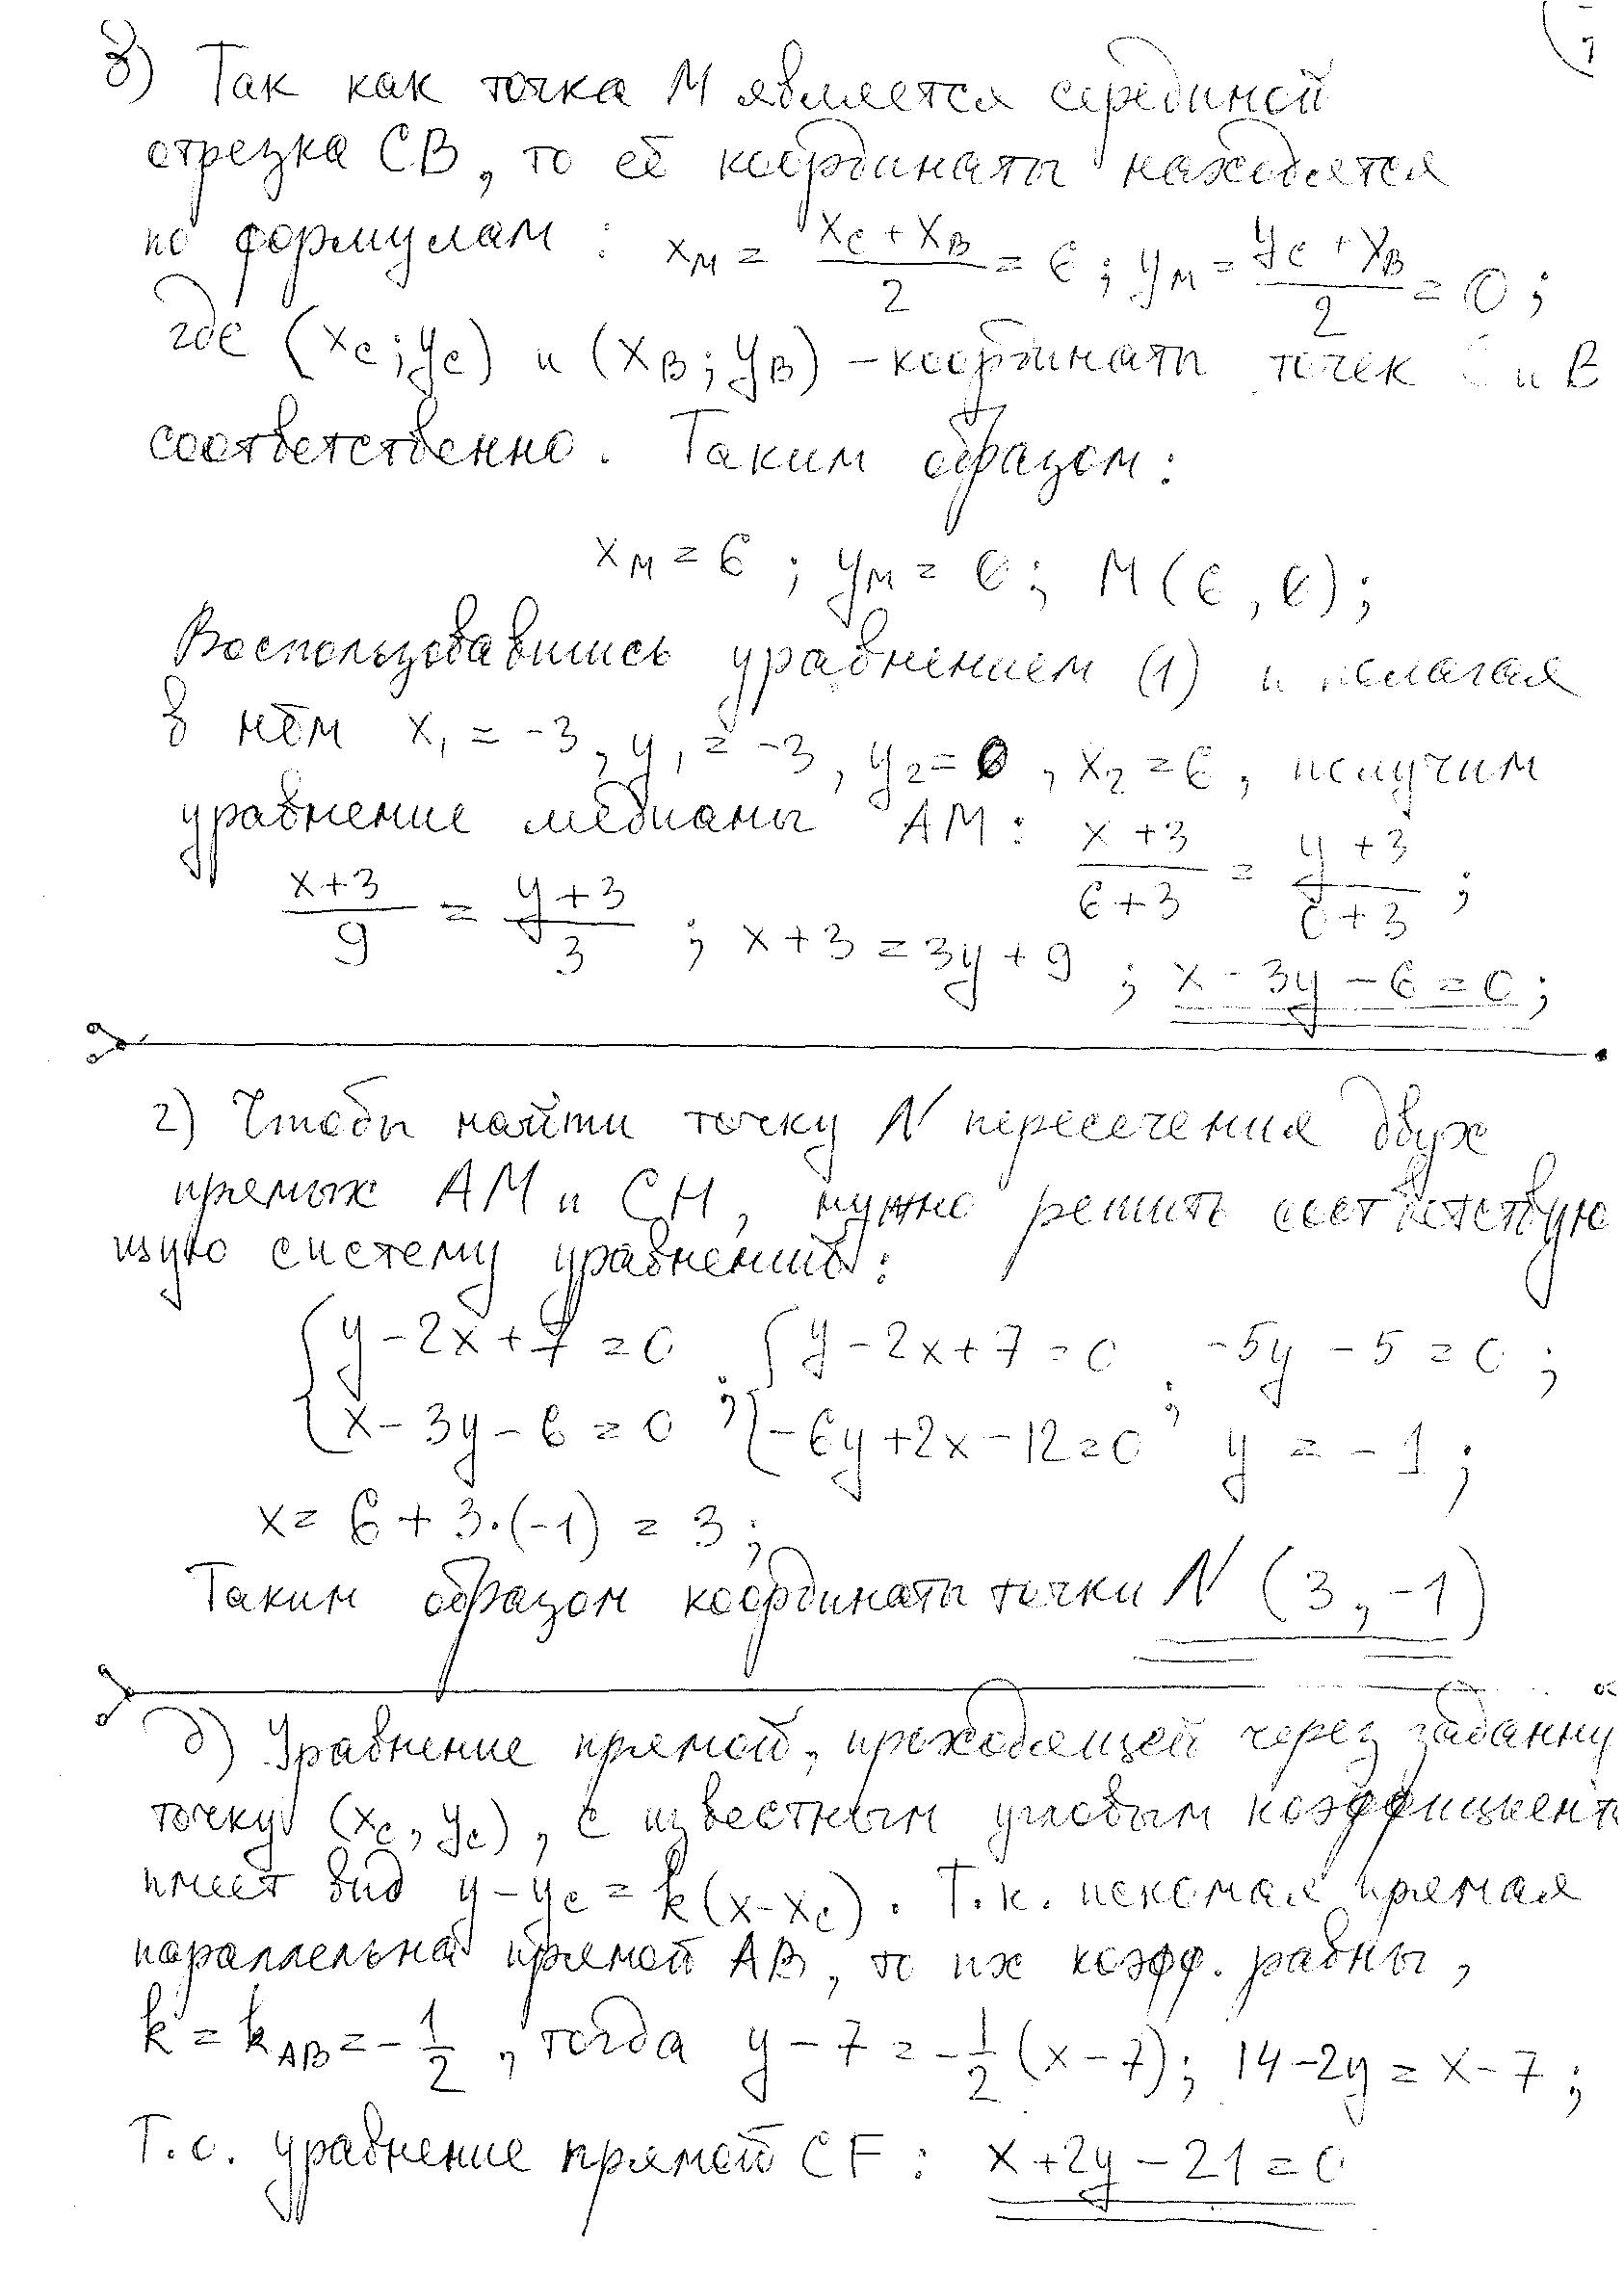 в) Так как точка М является серединой
отрезка СВ, то её координаты находятся
по формулам: x_M = (x_C + x_B)/2 = 6; y_M = (y_C + y_B)/2 = 0;
где (x_C; y_C) и (x_B; y_B) – координаты точек С и В
соответственно. Таким образом:
x_M = 6; y_M = 0; M(6, 0);
Воспользовавшись уравнением (1) и полагая
в нём x₁ = -3, y₁ = -3, y₂ = 0, x₂ = 6, получим
уравнение медианы АМ: (x + 3)/(6 + 3) = (y + 3)/(0 + 3);
(x + 3)/9 = (y + 3)/3; x + 3 = 3y + 9; x - 3y - 6 = 0;
г) Чтобы найти точку N пересечения двух
прямых АМ и СН, нужно решить соответствую
щую систему уравнений:
{y - 2x + 7 = 0; {y - 2x + 7 = 0; -5y - 5 = 0;
{x - 3y - 6 = 0 {-6y + 2x - 12 = 0 y = -1;
x = 6 + 3·(-1) = 3;
Таким образом координаты точки N (3, -1)
д) Уравнение прямой, проходящей через заданну
точку (x_C, y_C), с известным угловым коэффициент
имеет вид y - y_C = k(x - x_C). Т.к. искомая прямая
параллельна прямой АВ, то их коэфф. равны,
k = k_AB = -1/2, тогда y - 7 = -1/2 (x - 7); 14 - 2y = x - 7;
Т.о. уравнение прямой CF: x + 2y - 21 = 0